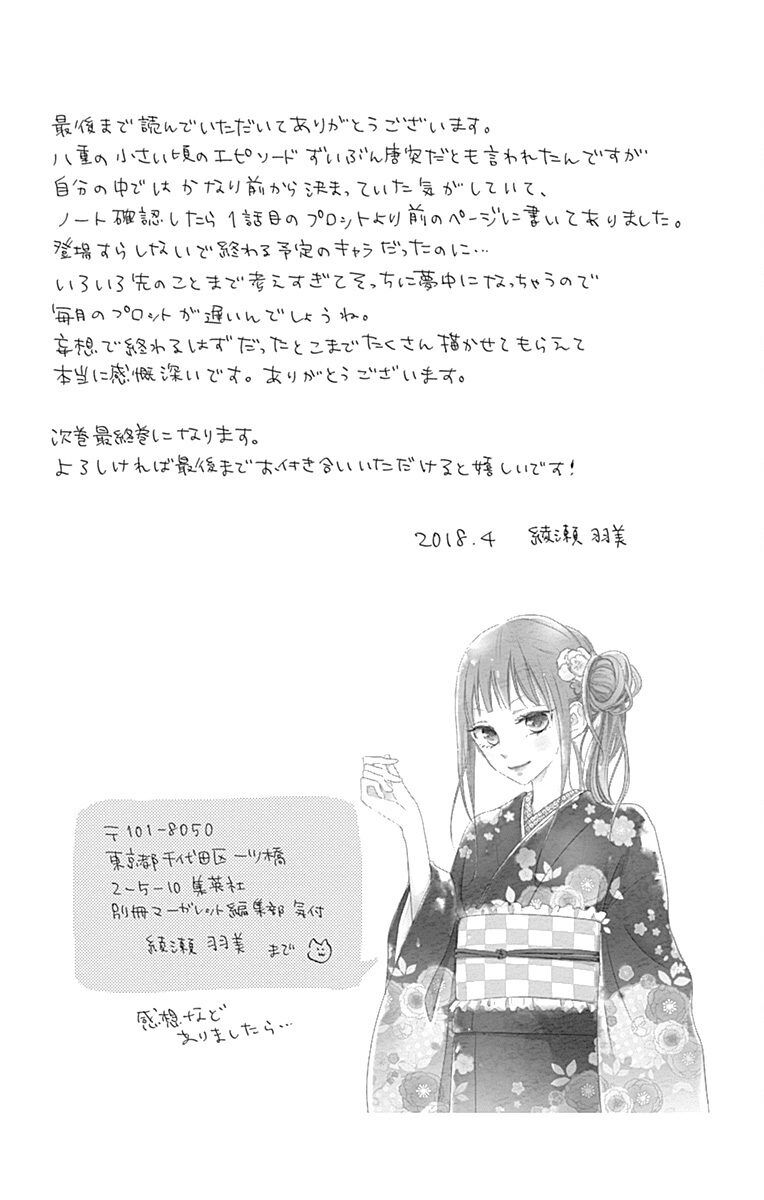 最後まで読んでいただいてありがとうございます。
八重の小さい頃のエピソード ずいぶん唐突だとも言われたんですが
自分の中では かなり前から決まっていた気がしていて、
ノート確認したら 1話目のプロットより前のページに書いてありました。
登場すらしないで終わる予定のキャラだったのに…
いろいろ先のことまで考えすぎてそっちに夢中になっちゃうので
毎月のプロットが遅いんでしょうね。
妄想で終わるはずだったとこまでたくさん描かせてもらえて
本当に感慨深いです。ありがとうございます。
次巻最終巻になります。
よろしければ最後までお付き合いいただけると嬉しいです!
2018.4 綾瀬 羽美
〒101-8050
東京都千代田区一ツ橋
2-5-10 集英社
別冊マーガレット編集部 気付
綾瀬 羽美 まで
感想など
ありましたら…